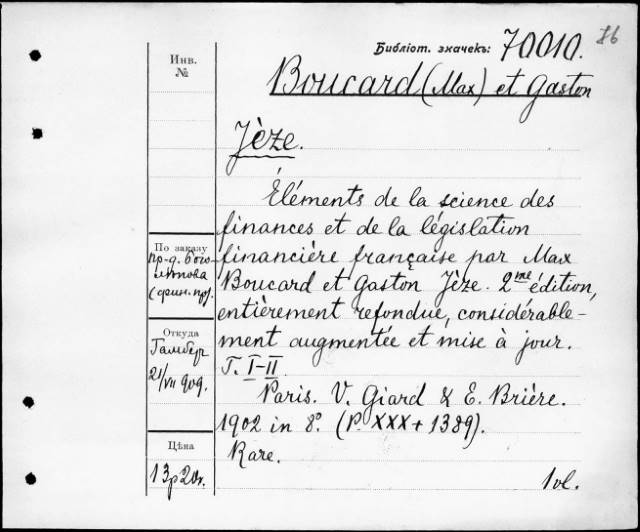 86
Библіот. значекъ: 70010.
Boucard (Max) et Gaston
Jèze.
Éléments de la science des
finances et de la législation
financière française par Max
Boucard et Gaston Jèze. 2me édition,
entièrement refondue, considérable-
ment augmentée et mise à jour.
T. I-II.
Paris. V. Giard & E. Brière.
1902 in 8°. (P. XXX + 1389).
Rare.
1 vol.
Инв.
№
По заказу
пр-д. Бого-
лѣпова
(фин. пр).
Откуда
Гамбург
21/VII 909.
Цѣна
13р 20к.